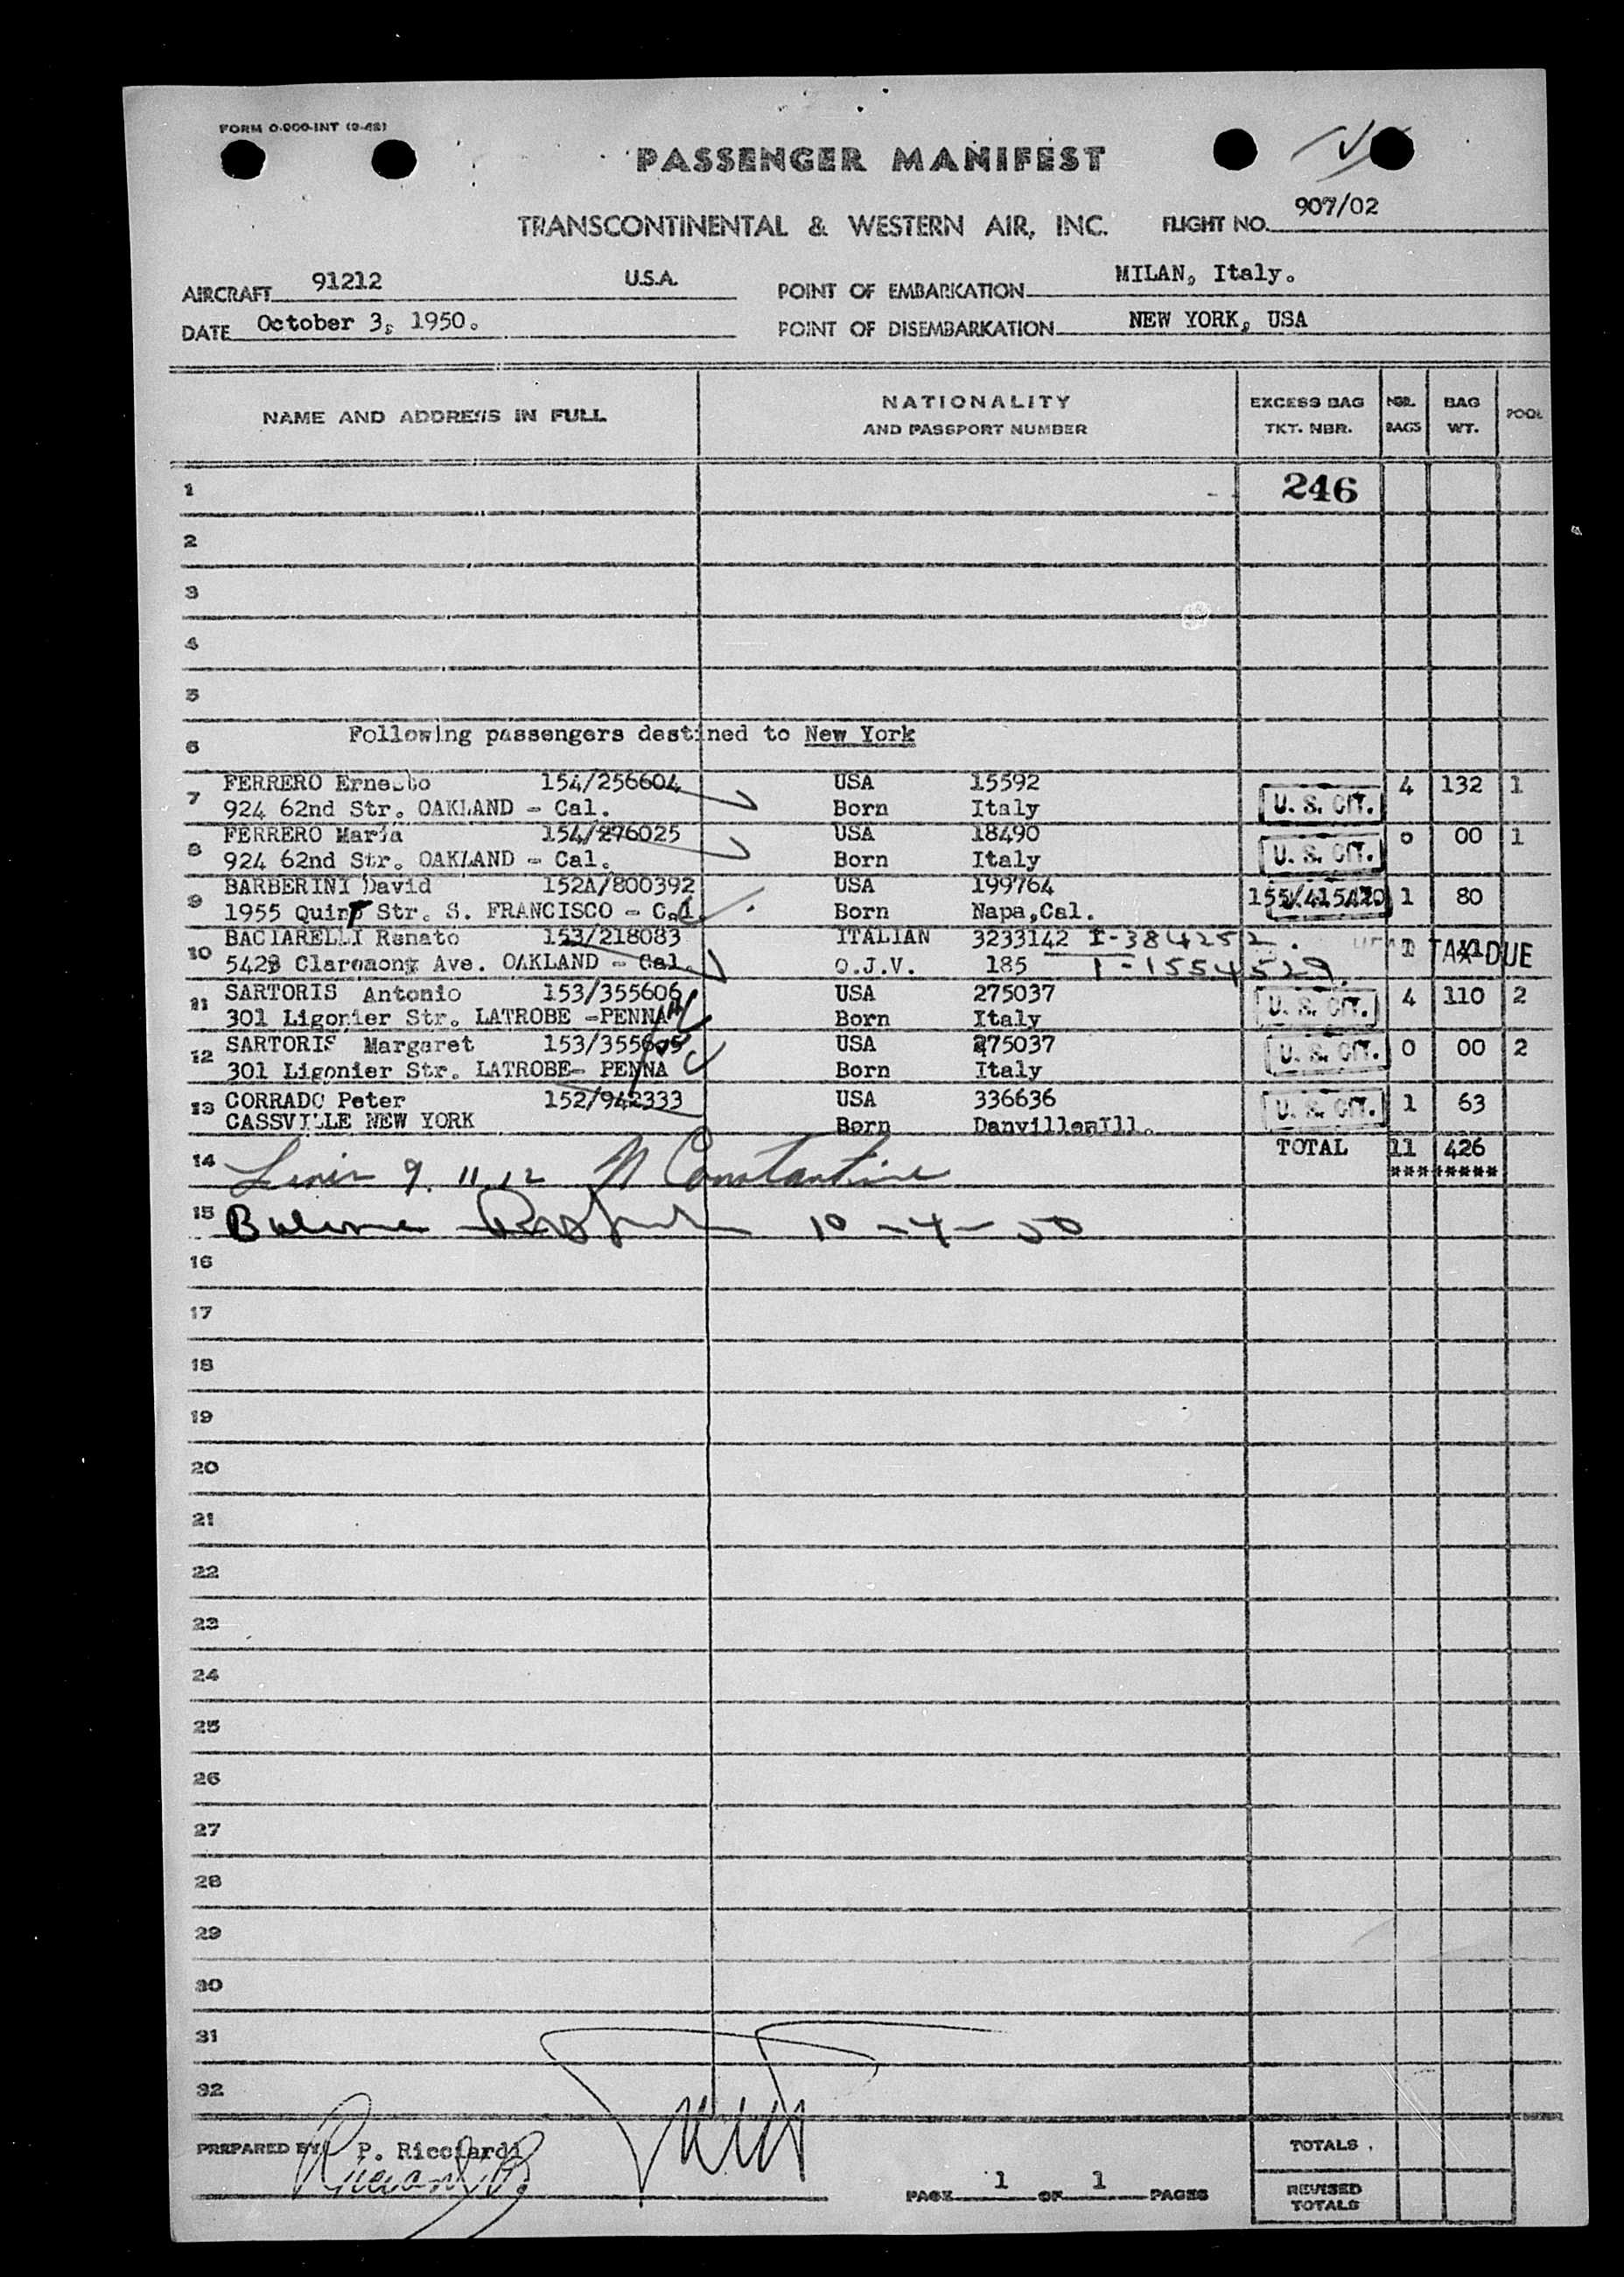 FORM 0-900-INT (9-48)
PASSENGER MANIFEST
TRANSCONTINENTAL & WESTERN AIR, INC. FLIGHT NO. 907/02
AIRCRAFT 91212 U.S.A. POINT OF EMBARKATION MILAN, Italy.
DATE October 3, 1950. POINT OF DISEMBARKATION NEW YORK, USA
NAME AND ADDRESS IN FULL NATIONALITY AND PASSPORT NUMBER EXCESS BAG TKT. NBR. NBR. BAGS BAG WT. POOL
1 246
2
3
4
5
6 Following passengers destined to New York
7 FERRERO Ernesto 154/256604 USA 15592 4 132 1
924 62nd Str. OAKLAND - Cal. Born Italy U. S. CIT.
8 FERRERO Maria 154/276025 USA 18490 0 00 1
924 62nd Str. OAKLAND - Cal. Born Italy U. S. CIT.
9 BARBERINI David 152A/800392 USA 199764 1 80
1955 Quint Str. S. FRANCISCO - Cal. Born Napa,Cal.
10 BACIARELLI Renato 153/218083 ITALIAN 3233142 I-384252 1 41 HEAD TAX DUE
Ave. OAKLAND - Cal. O.J.V. 185 I-1554529
11 SARTORIS Antonio 153/355606 USA 275037 4 110 2
301 Ligonier Str. LATROBE -PENNA Born Italy U. S. CIT.
12 SARTORIS Margaret 153/355605 USA 275037 0 00 2
301 Ligonier Str. LATROBE- PENNA Born Italy U. S. CIT.
13 CORRADO Peter 152/942333 USA 336636 1 63
CASSVILLE NEW YORK Born Danville,Ill. U. S. CIT.
TOTAL 11 426
*** *****
14 9. 11. 12 N Constantine
15 10-4-50
16
17
18
19
20
21
22
23
24
25
26
27
28
29
30
31
32
PREPARED BY P. Ricciardi TOTALS
PAGE 1 OF 1 PAGES REVISED TOTALS